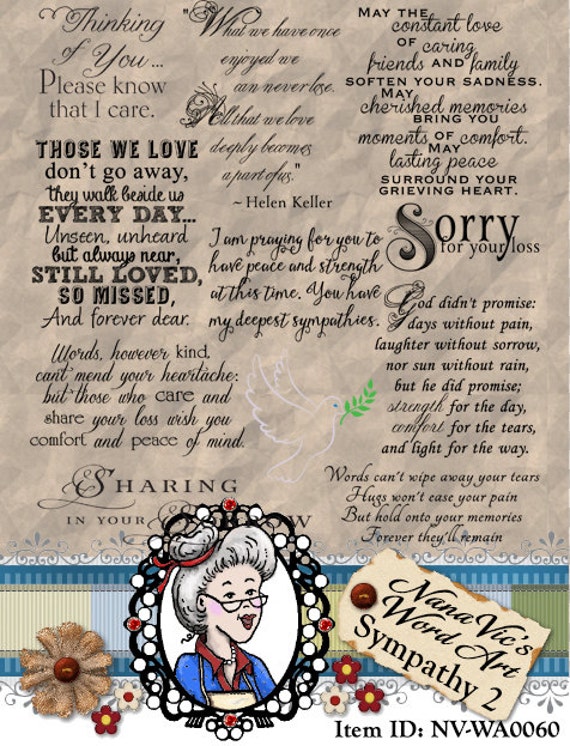 Thinking
of You...
Please know
that I care.
"What we have once
enjoyed we
can never lose.
All that we love
deeply becomes
a part of us."
~ Helen Keller
MAY THE
constant love
OF caring
friends AND family
SOFTEN YOUR SADNESS.
MAY
cherished memories
BRING YOU
moments OF comfort.
MAY
lasting peace
SURROUND YOUR
GRIEVING HEART.
THOSE WE LOVE
don't go away,
they walk beside us
EVERY DAY...
Unseen, unheard
but always near,
STILL LOVED,
SO MISSED,
And forever dear.
I am praying for you to
have peace and strength
at this time. You have
my deepest sympathies.
Sorry
for your loss
God didn't promise:
days without pain,
laughter without sorrow,
nor sun without rain,
but he did promise;
strength for the day,
comfort for the tears,
and light for the way.
Words, however kind,
cant mend your heartache:
but those who care and
share your loss wish you
comfort and peace of mind.
Words can't wipe away your tears
Hugs won't ease your pain
But hold onto your memories
Forever they'll remain
SHARING
IN YOUR
NanaVic's
Word Art
Sympathy 2
Item ID: NV-WA0060